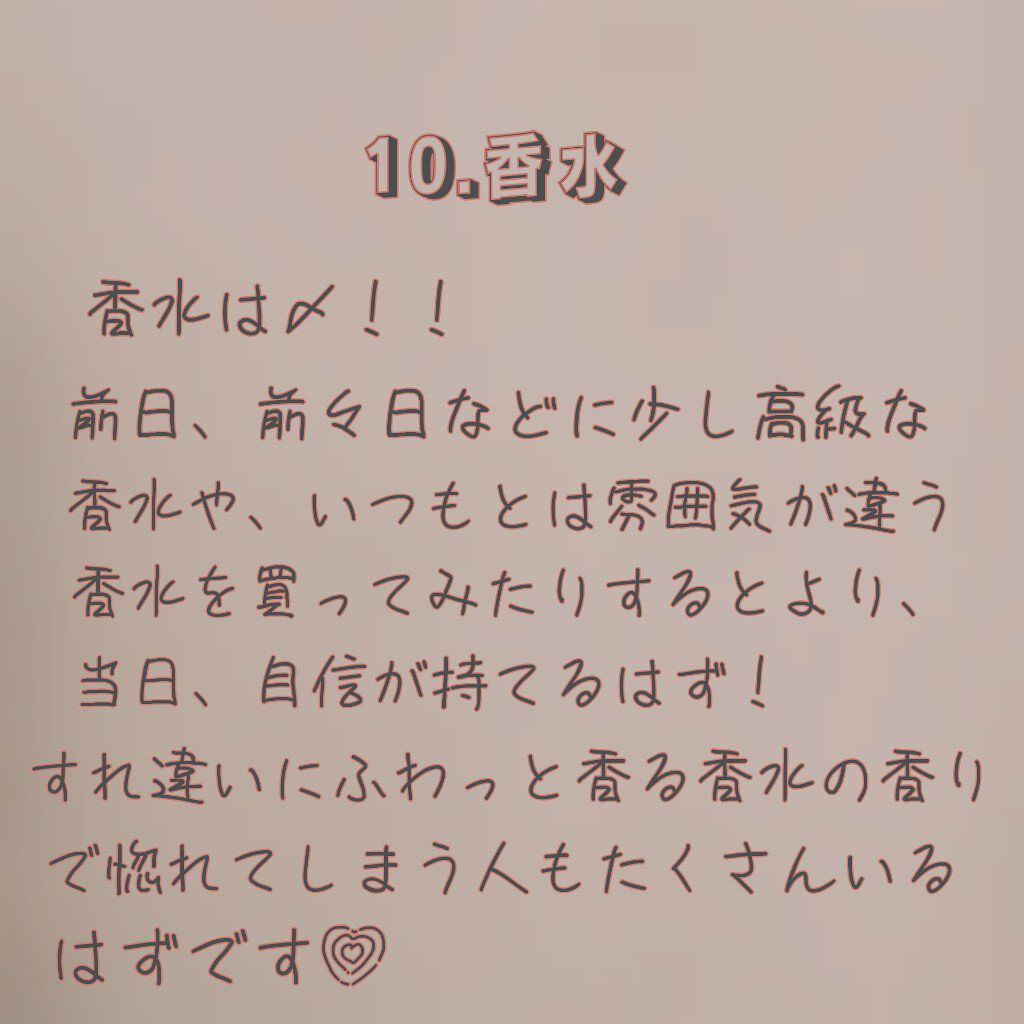 10.香水
香水は〆！！
前日、前々日などに少し高級な
香水や、いつもとは雰囲気が違う
香水を買ってみたりするとより、
当日、自信が持てるはず！
すれ違いにふわっと香る香水の香り
で惚れてしまう人もたくさんいる
はずです💗